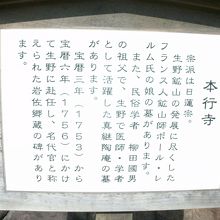 本行寺
宗派は日蓮宗。
生野鉱山の発展に尽くした
フランス人鉱山師ポール・レ
ルム氏の娘の墓があります。
また、民俗学者 柳田國男
の祖父で、生野で医師・学者
として活躍した真継陶庵の墓
があります。
宝暦三年(1753)から
宝暦六年(1756)にかけ
て生野に赴任し、名代官と称
えられた岩佐郷蔵の碑があり
ます。